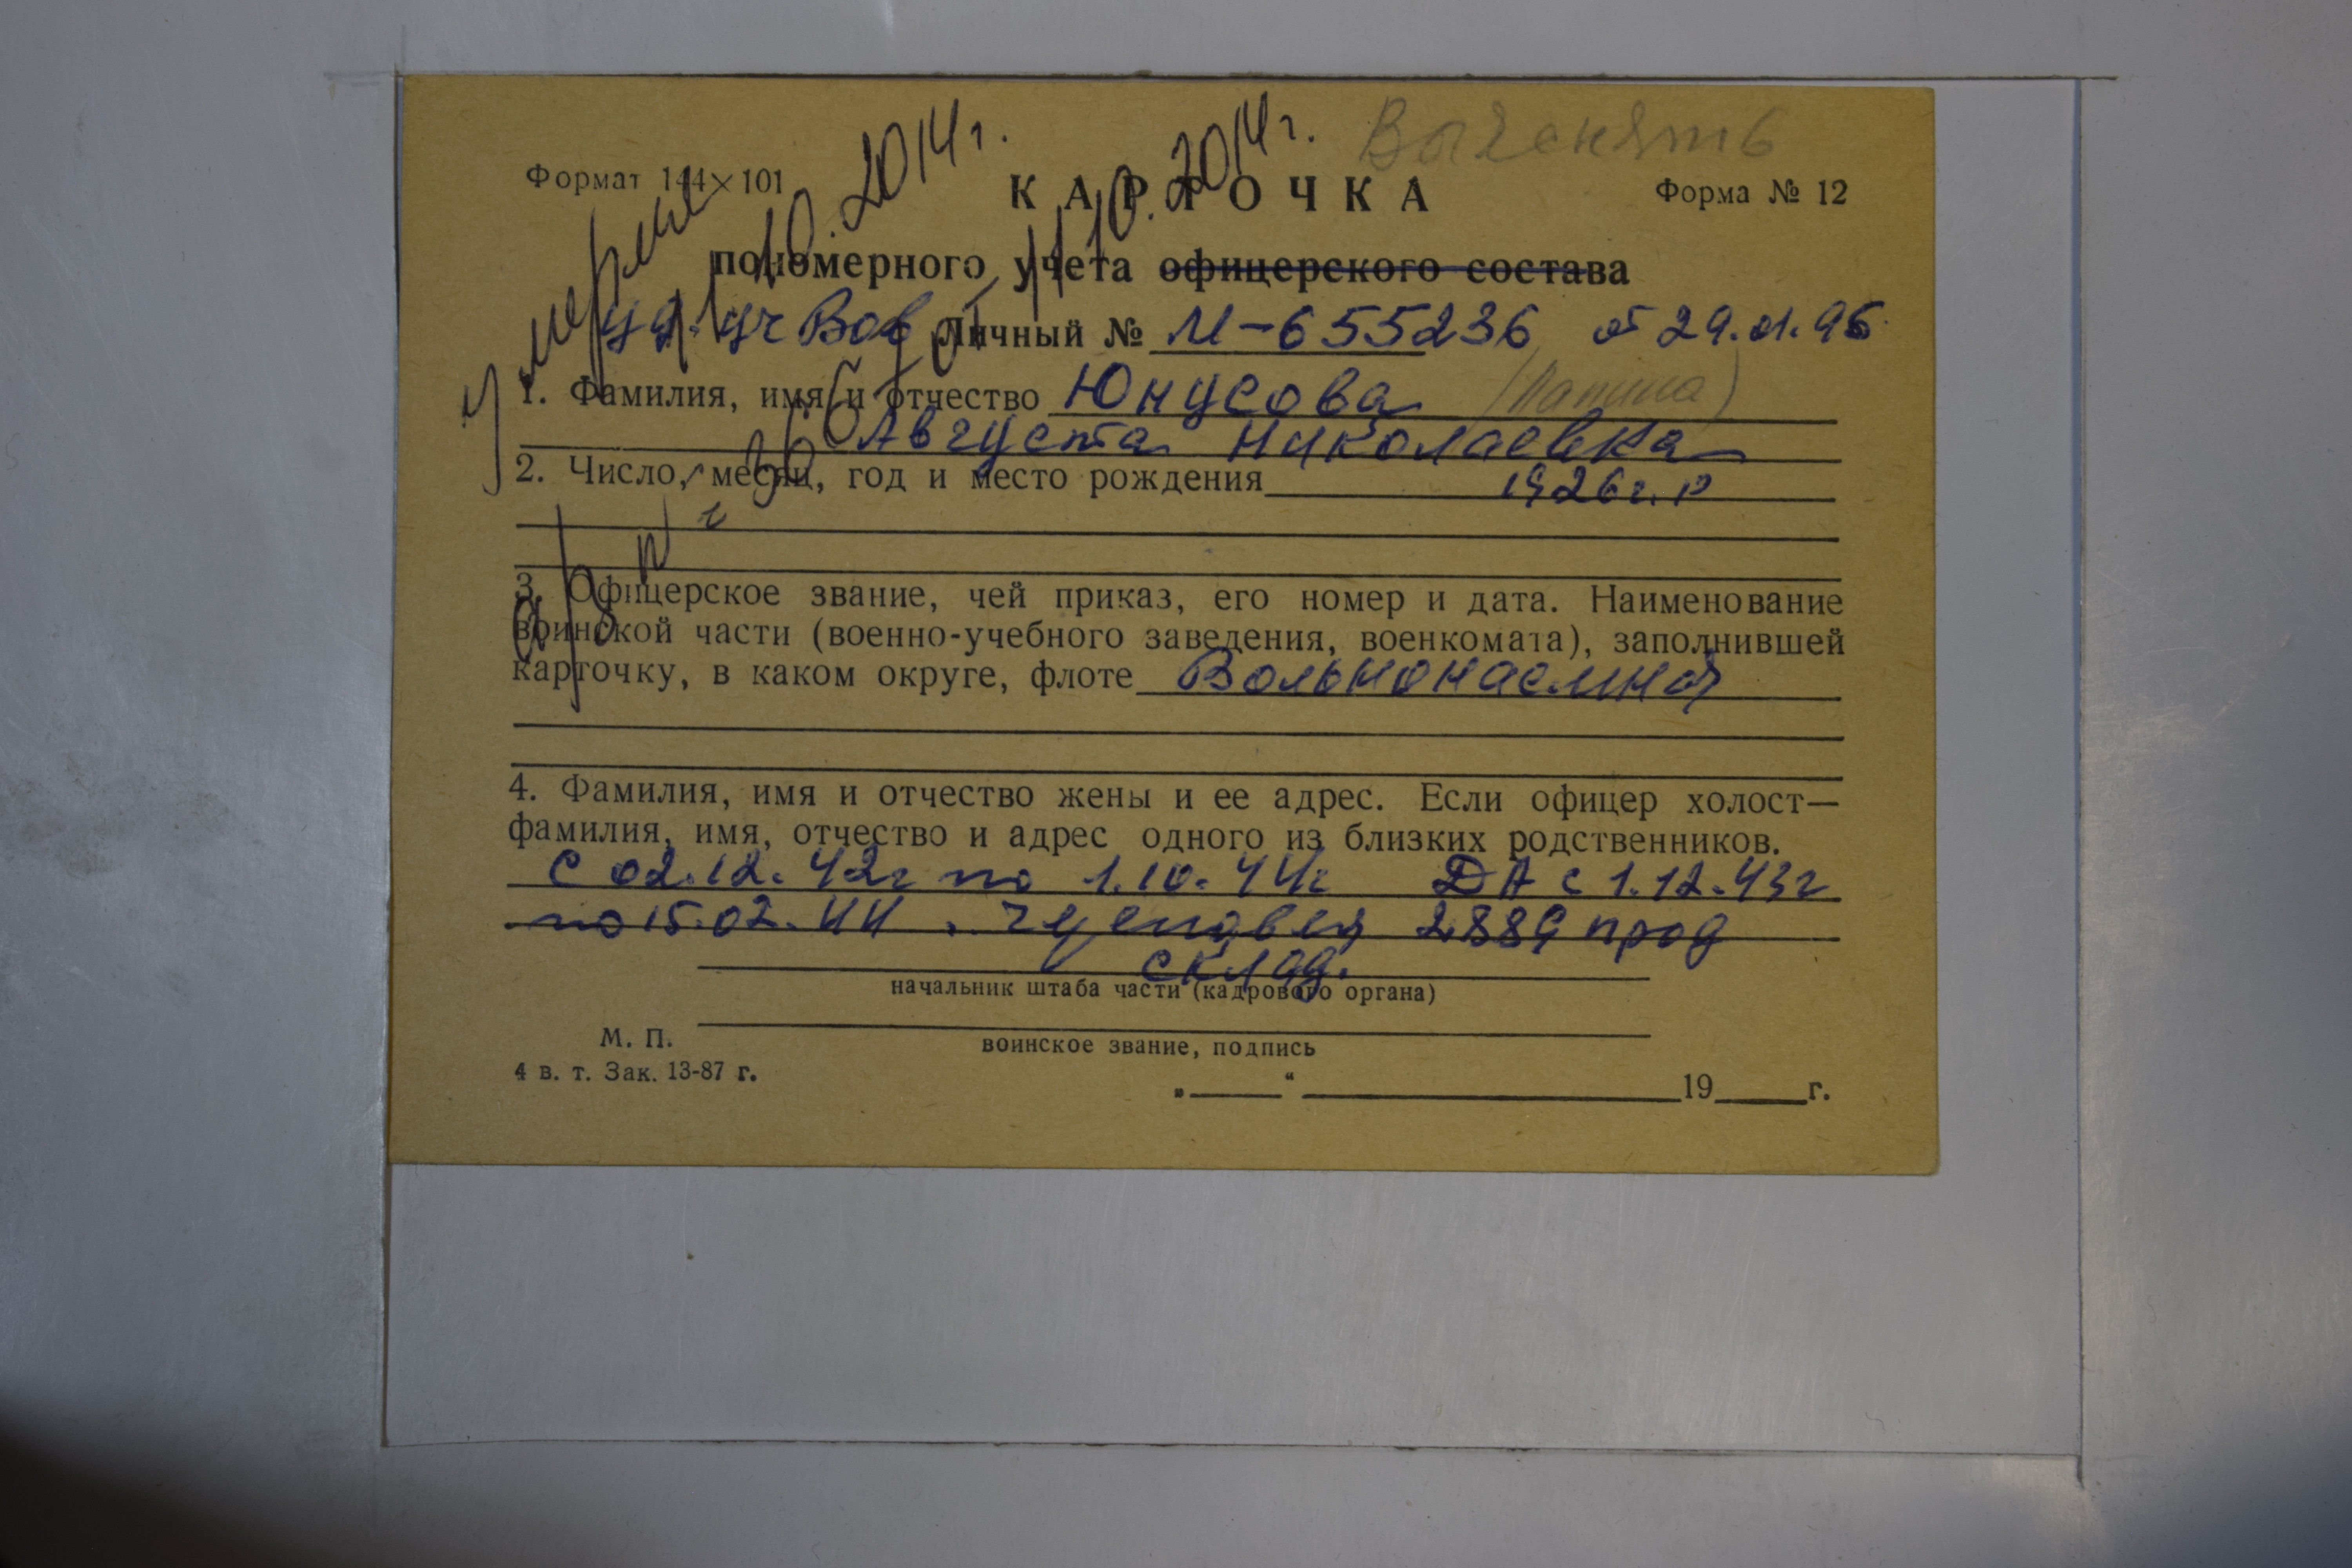 Выгонять
Формат 144×101
К А Р Т О Ч К А
Форма № 12
пономерного учета офицерского состава
уд. уч Вов Личный № И-655236 от 29.01.96
1. Фамилия, имя и отчество Юнусова
Августа Николаевна
2. Число, месяц, год и место рождения 1926 г. р
3. Офицерское звание, чей приказ, его номер и дата. Наименование
воинской части (военно-учебного заведения, военкомата), заполнившей
карточку, в каком округе, флоте Вольнонаемная
4. Фамилия, имя и отчество жены и ее адрес. Если офицер холост—
фамилия, имя, отчество и адрес одного из близких родственников.
С 02.12.42г по 1.10.44г ДА с 1.12.43г
по 15.02.44. 2889 прод
склад.
начальник штаба части (кадрового органа)
М. П.
воинское звание, подпись
4 в. т. Зак. 13-87 г.
„ “ 19 г.
умерла 10.2014г.
11.10.2014г.